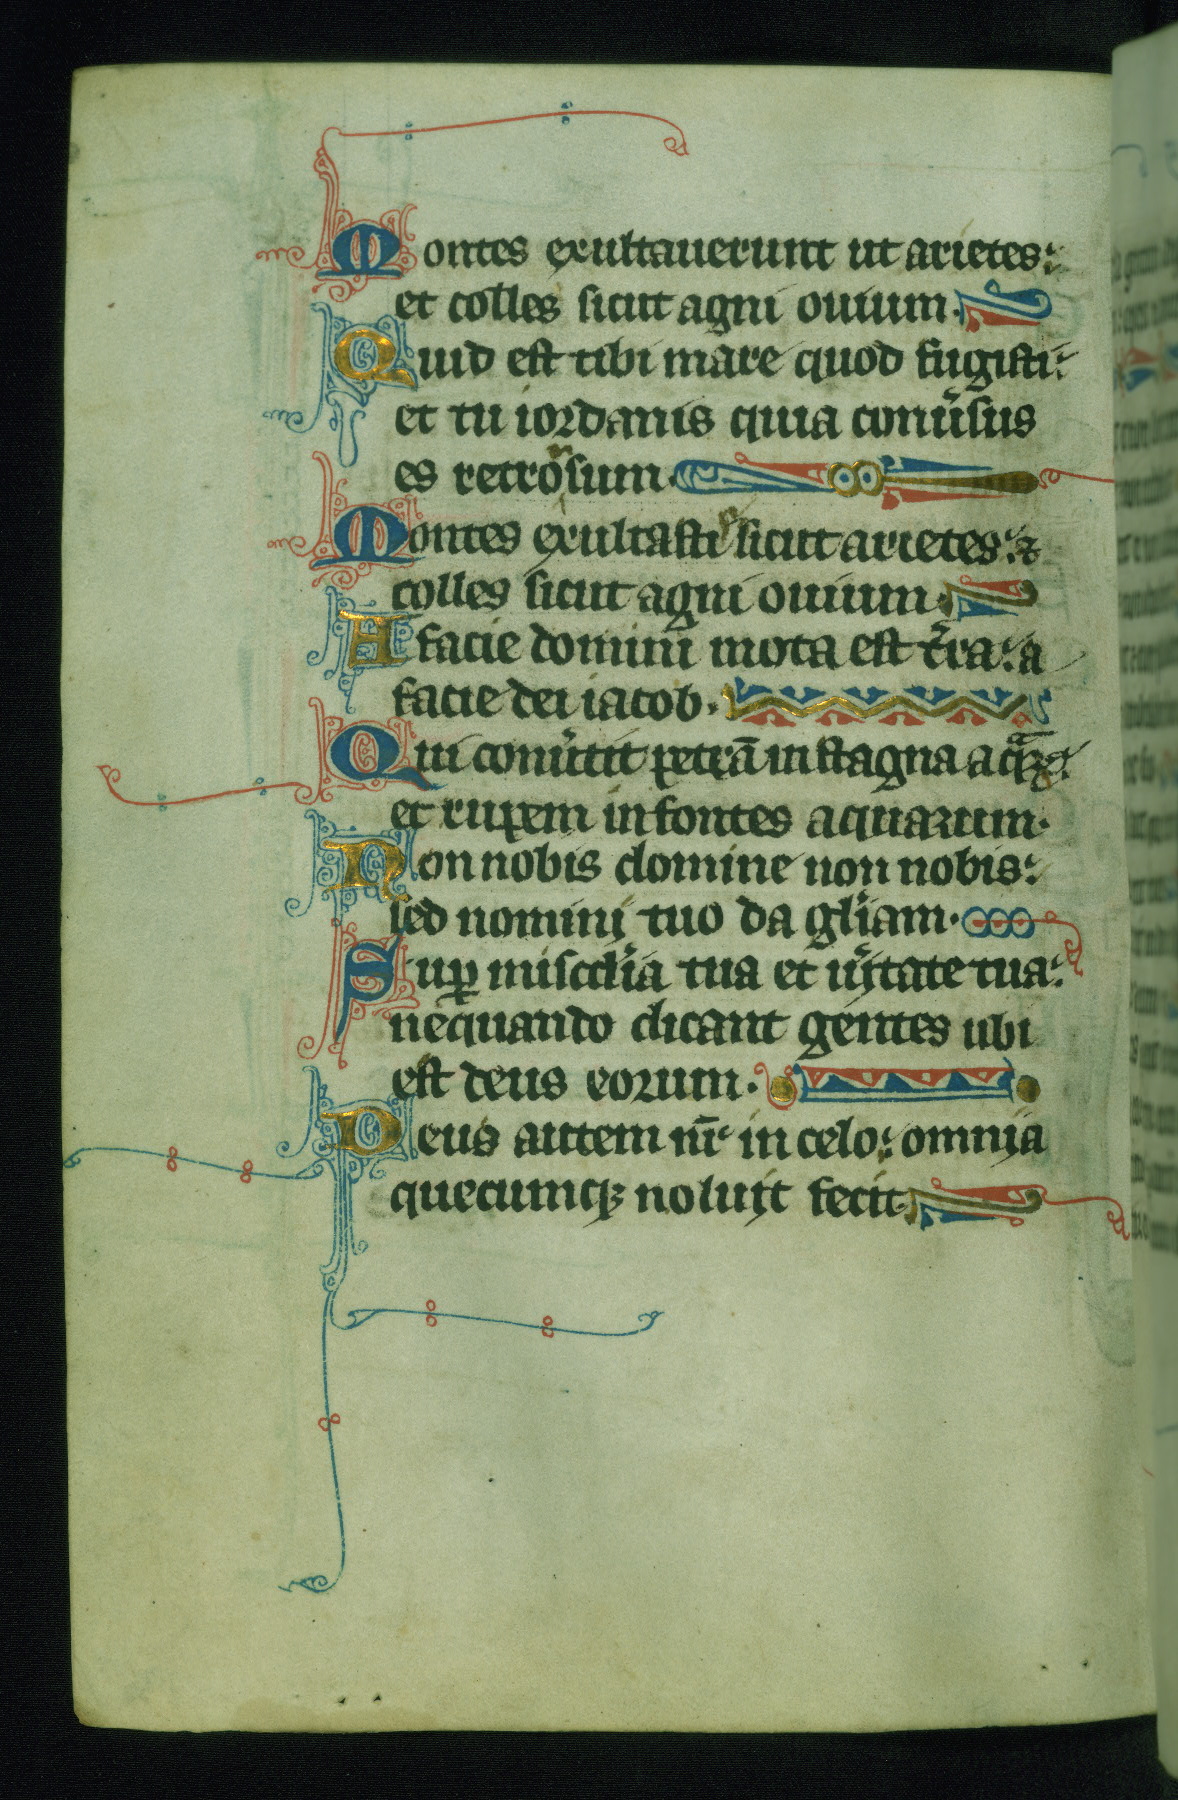 Montes exultauerunt ut arietes:
et colles sicut agni ouium.
Quid est tibi mare quod fugisti:
et tu iordanis quia conu̾sus
es retro̾sum.
Montes exultasti sicut arietes: ⁊
colles sicut agni ouium.
A facie domini mota est t̾ra: a
facie dei iacob.
Qui conu̾tit petrā in stagna aqͣꝝ:
et rupem in fontes aquarum.
Non nobis domine non nobis:
sed nomini tuo da gl̾iam.
Suꝑ miscd̾ia tua et u̾itate tua:
nequando dicant gentes ubi
est deus eorum.
Deus autem nr̄ in celo: omnia
quecumqꝫ uoluit fecit.